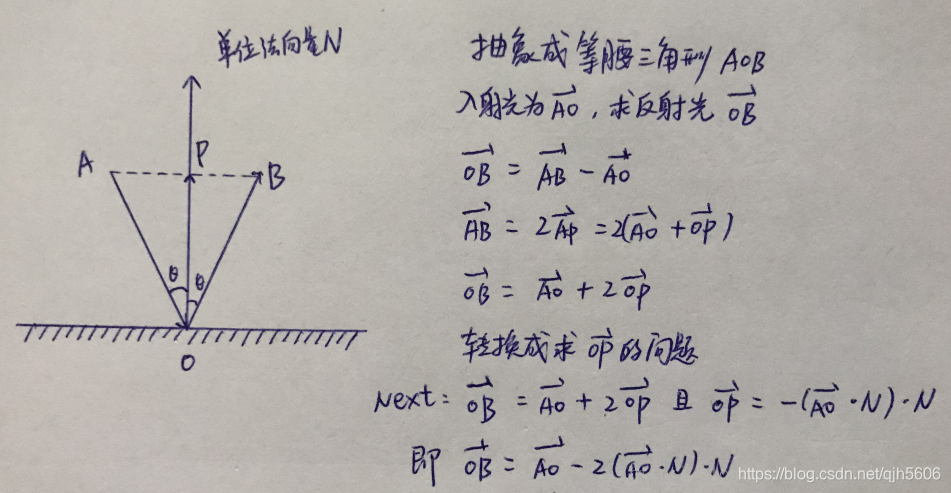 单位法向量N
A
P
B
θ
θ
O
抽象成等腰三角形 AOB
入射光为 \overrightarrow{AO} , 求反射光 \overrightarrow{OB}
\overrightarrow{OB} = \overrightarrow{AB} - \overrightarrow{AO}
\overrightarrow{AB} = 2\overrightarrow{AP} = 2(\overrightarrow{AO} + \overrightarrow{OP})
\overrightarrow{OB} = \overrightarrow{AO} + 2\overrightarrow{OP}
转换成求 \overrightarrow{OP} 的问题
Next: \overrightarrow{OB} = \overrightarrow{AO} + 2\overrightarrow{OP} 且 \overrightarrow{OP} = -(\overrightarrow{AO} · N) · N
即 \overrightarrow{OB} = \overrightarrow{AO} - 2(\overrightarrow{AO} · N) · N
https://blog.csdn.net/qjh5606